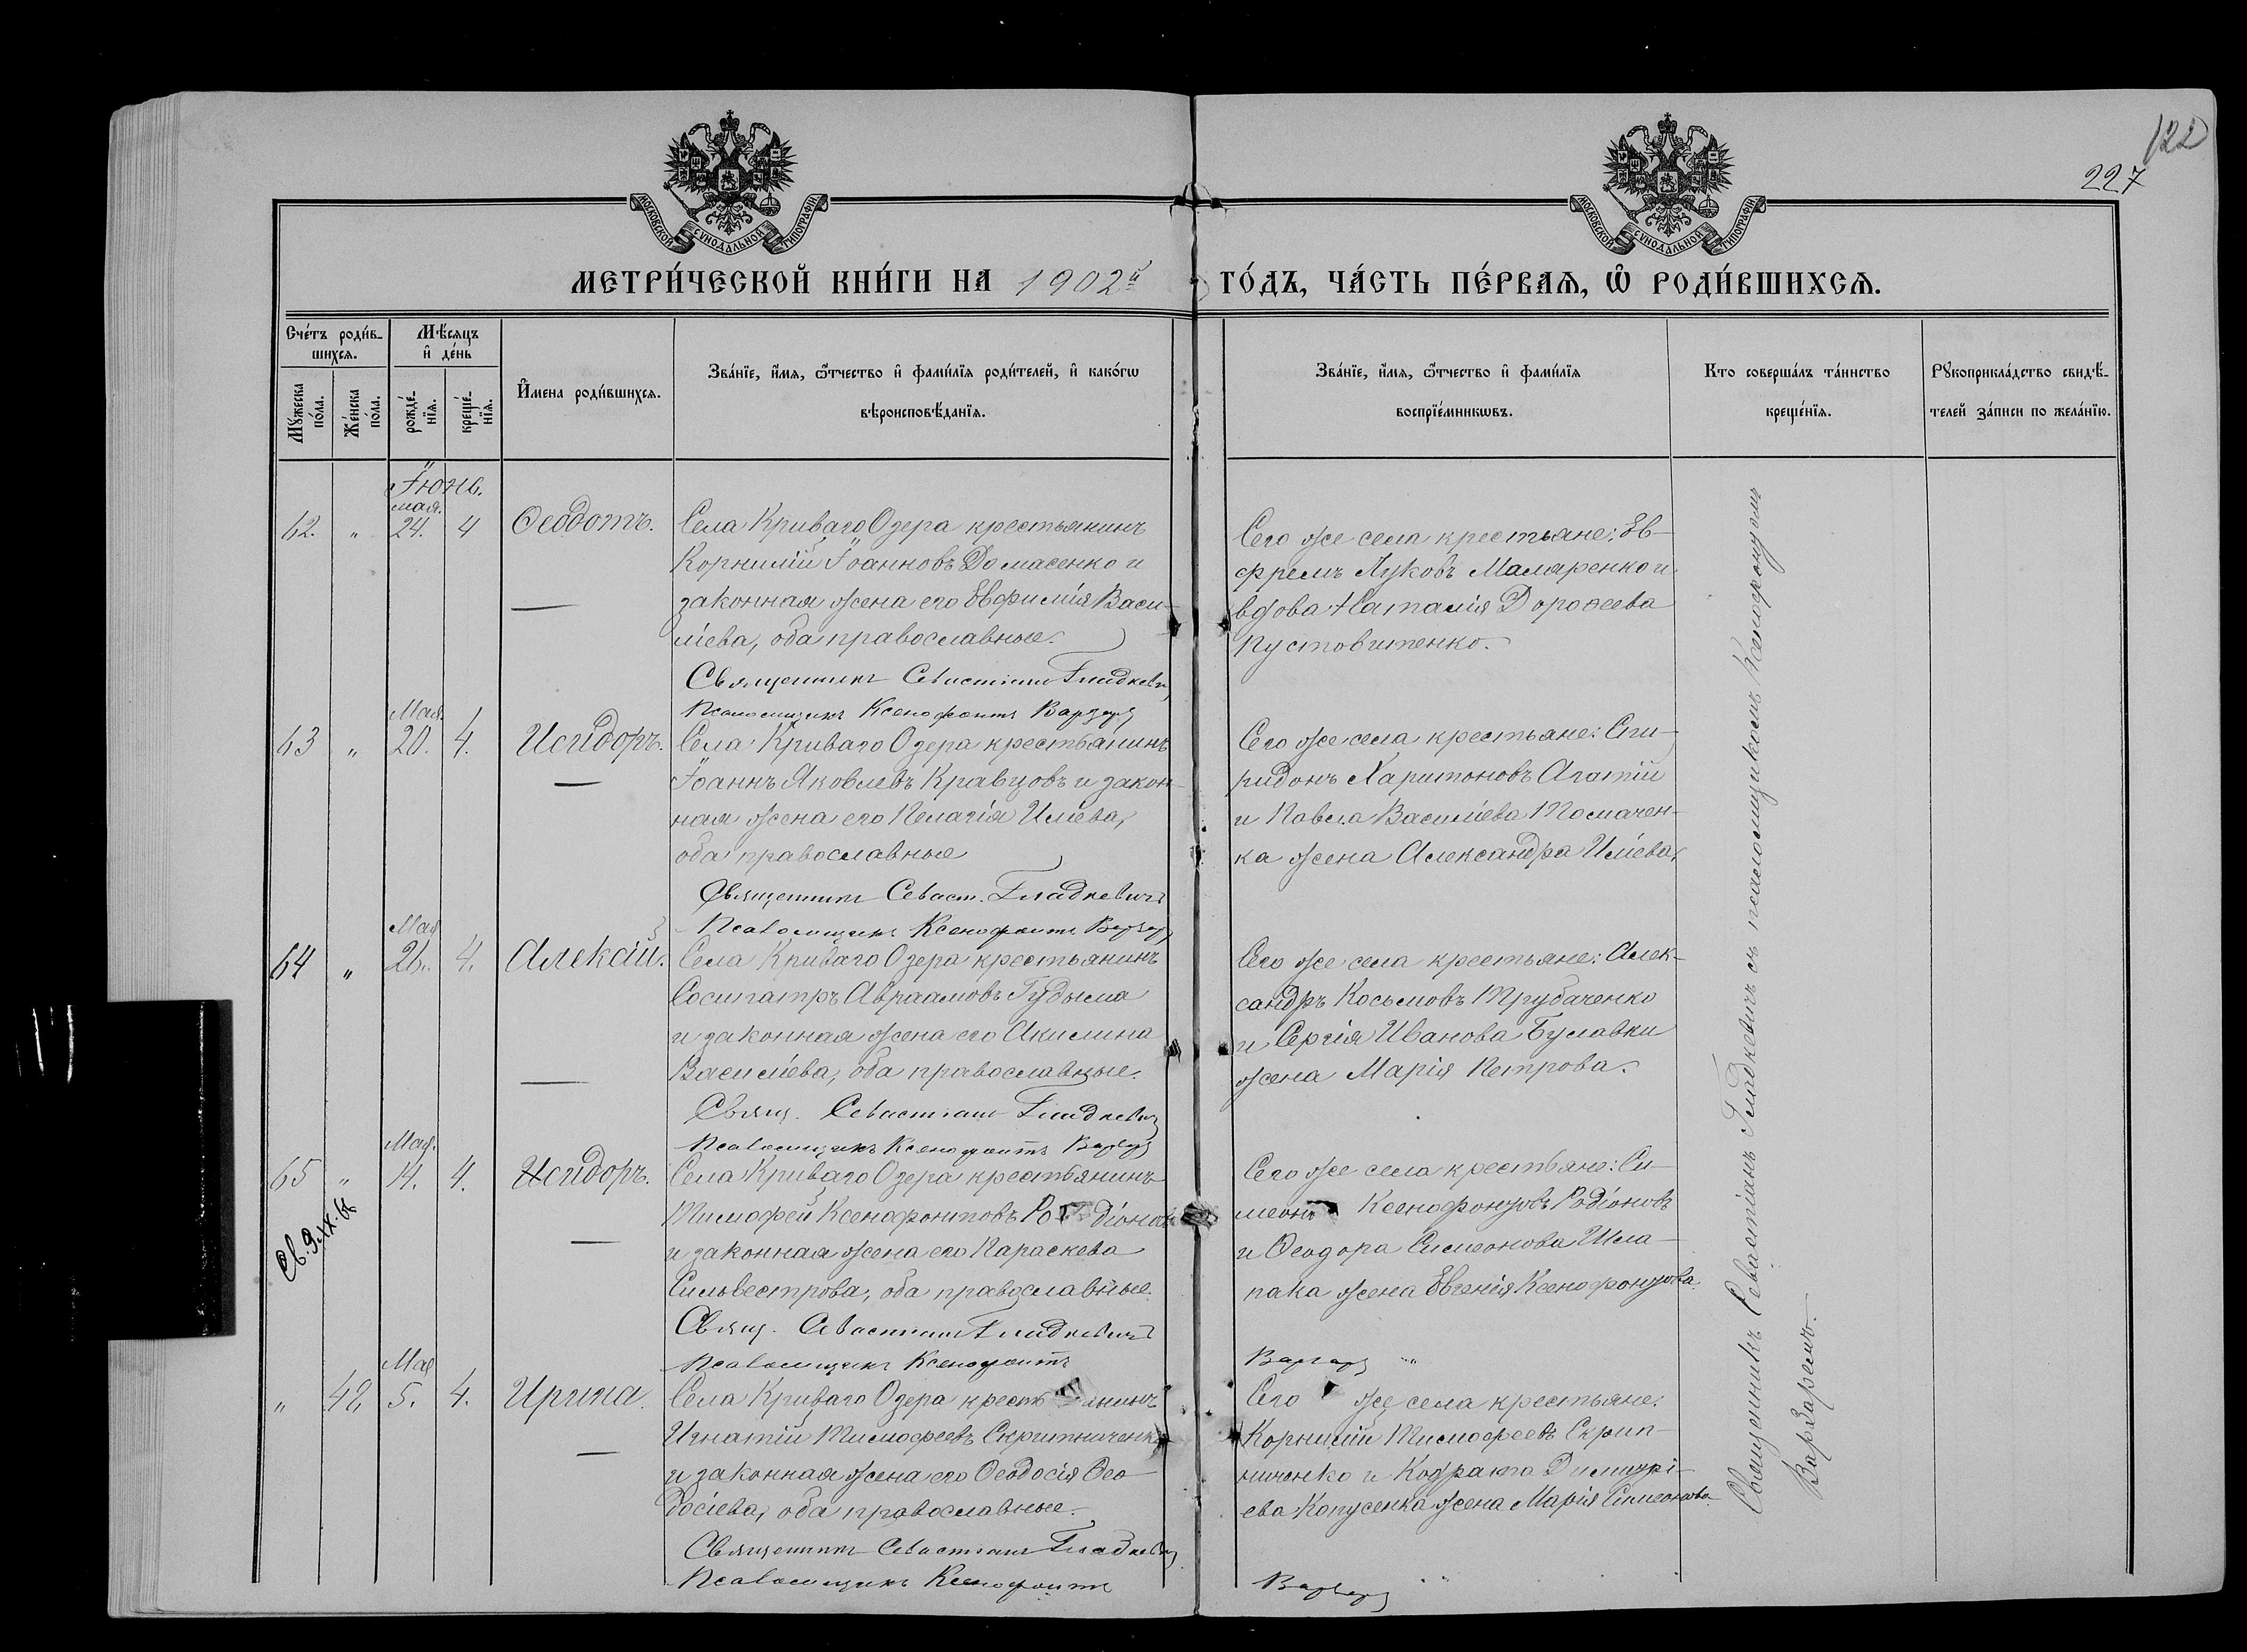 122
227
МОСКОВСКОЙ СѴНОДАЛЬНОЙ ТИПОГРАФІИ
МОСКОВСКОЙ СѴНОДАЛЬНОЙ ТИПОГРАФІИ
МЕТРИ́ЧЕСКОЙ КНИ́ГИ НА 1902й ГО́ДЪ, ЧА́СТЬ ПЕ́РВАЯ, Ѡ РОДИ́ВШИХСЯ.
Сче́тъ роди́в-
шихся.
Мѣ́сяцъ
и де́нь
Му́жеска по́ла.
Же́нска по́ла.
рожде́-
нїя.
креще́-
нїя.
И́мена роди́вшихся.
Зва́нїе, и́мя, ѻ́тчество и фами́лїя роди́телей, и како́гѡ
вѣроисповѣ́данїя.
Зва́нїе, и́мя, ѻ́тчество и фами́лїя
воспрїе́мникωвъ.
Кто соверша́лъ та́инство
креще́нїя.
Рꙋкоприкла́дство свидѣ́-
телей за́писи по жела́нїю.
Іюнь.
мая.
62. " 24. 4 Ѳеодотъ.
Села Криваго Озера крестьянинъ
Корнилій Іоанновъ Домасенко и
законная жена его Евфимія Васи-
ліева, оба православные.
Священникъ Севастіан Гладкевич
Псаломщикъ Ксенофонтъ Варзарь
Сего же села крестьяне: Ев-
фремъ Луковъ Маляренко и
вдова Наталія Дороѳеева
Пустовитенко.
Мая.
63 " 20. 4. Исидоръ.
Села Криваго Озера крестьянинъ
Іоаннъ Яковлевъ Кравцовъ и закон-
ная жена его Пелагія Иліева,
оба православные
Священникъ Севаст. Гладкевичъ
Псаломщикъ Ксенофонтъ Варзарь
Сего же села крестьяне: Спи-
ридонъ Харитоновъ Агатій
и Павла Василіева Толмачен-
ка жена Александра Иліева.
Мая
64 " 26. 4. Алексій.
Села Криваго Озера крестьянинъ
Сосипатръ Авраамовъ Гудыма
и законная жена его Акилина
Василіева, оба православные.
Свящ. Севастіан Гладкевич
Псаломщикъ Ксенофонтъ Варзарь
Сего же села крестьяне: Алек-
сандръ Косьмовъ Трубаченко
и Сергія Иванова Булавки
жена Марія Петрова.
Мая.
65 " 14. 4. Исидоръ.
Села Криваго Озера крестьянинъ
Тимофей Ксенофонтовъ Родіоновъ
и законная жена его Параскева
Сильвестрова, оба православные.
Свящ. Севастіан Гладкевичъ
Псаломщикъ Ксенофонтъ Варзарь
Сего же села крестьяне: Си-
меонъ Ксенофонтовъ Родіоновъ
и Ѳеодора Симеонова Шла-
пака жена Евгенія Ксенофонтова.
Мая
" 42. 5. 4. Ирина.
Села Криваго Озера крестьянинъ
Игнатій Тимофеевъ Скрипниченко
и законная жена его Ѳеодосія Ѳео-
досіева, оба православные.
Священникъ Севастіан Гладкевич
Псаломщикъ Ксенофонтъ Варзарь
Сего же села крестьяне:
Корнилій Тимофеевъ Скрип-
ниченко и Кодрата Димитрі-
ева Копусенка жена Марія Симеонова
Священникъ Севастіанъ Гладкевичъ съ псаломщикомъ Ксенофонтомъ
Варзаремъ.